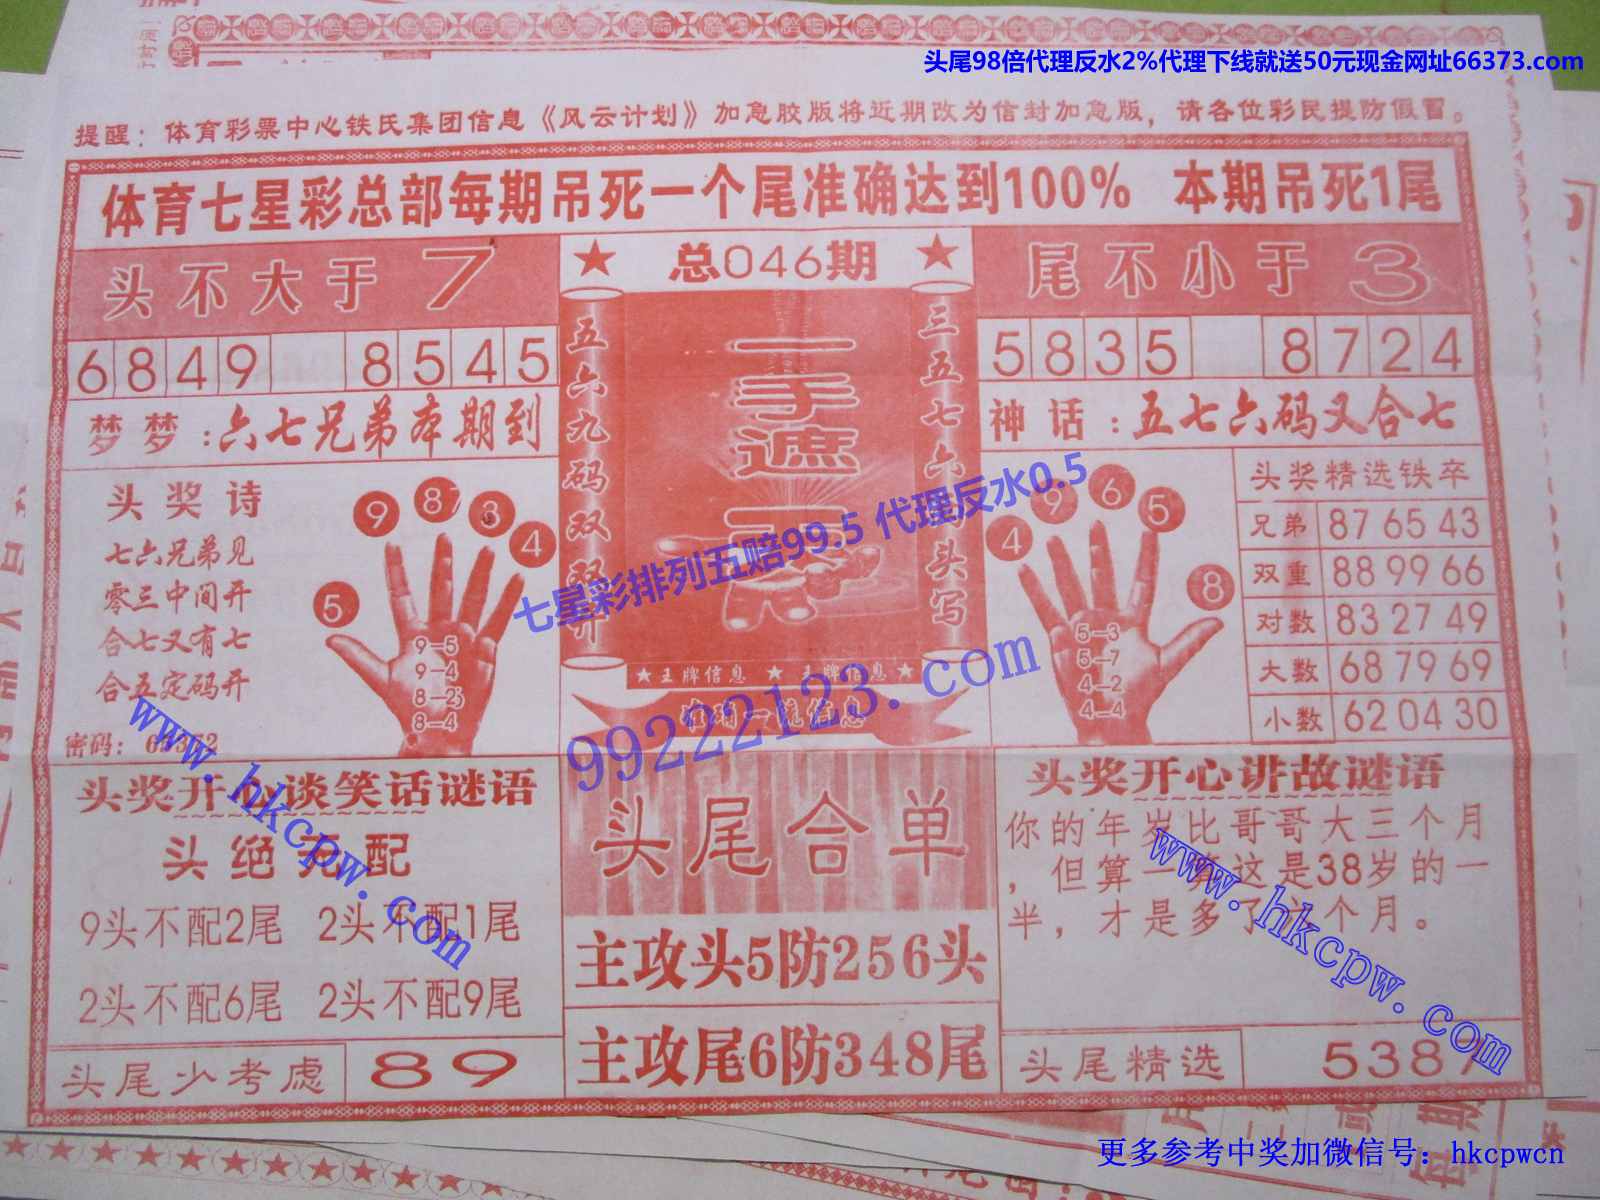 头尾98倍代理反水2%代理下线就送50元现金网址66373.com
提醒：体育彩票中心铁氏集团信息《风云计划》加急胶版将近期改为信封加急版，请各位彩民提防假冒。
体育七星彩总部每期吊死一个尾准确达到100% 本期吊死1尾
头不大于7
总046期
尾不小于3
6849 8545
5835 8724
梦梦：六七兄弟本期到
神话：五七六码又合七
五六九码双双开
一手遮天
三五七六头写
头奖诗
七六兄弟见
零三中间开
合七又有七
合五定码开
密码：
5
9
8
3
4
9—5
9—4
8—2
8—4
4
9
6
5
8
5—3
5—7
4—2
4—4
头奖精选铁卒
兄弟 87 65 43
双重 88 99 66
对数 83 27 49
大数 68 79 69
小数 62 04 30
七星彩排列五赔99.5 代理反水0.5
★王牌信息 ★ 王牌信息★
一 信息
99222123.com
www.hkcpw.com
头奖开心谈笑话谜语
头绝死配
9头不配2尾 2头不配1尾
2头不配6尾 2头不配9尾
头尾少考虑 89
头尾合单
主攻头5防256头
主攻尾6防348尾
头奖开心讲故谜语
你的年岁比哥哥大三个月
，但算一算这是38岁的一
半，才是多了六个月。
www.hkcpw.com
头尾精选 538
更多参考中奖加微信号：hkcpwcn